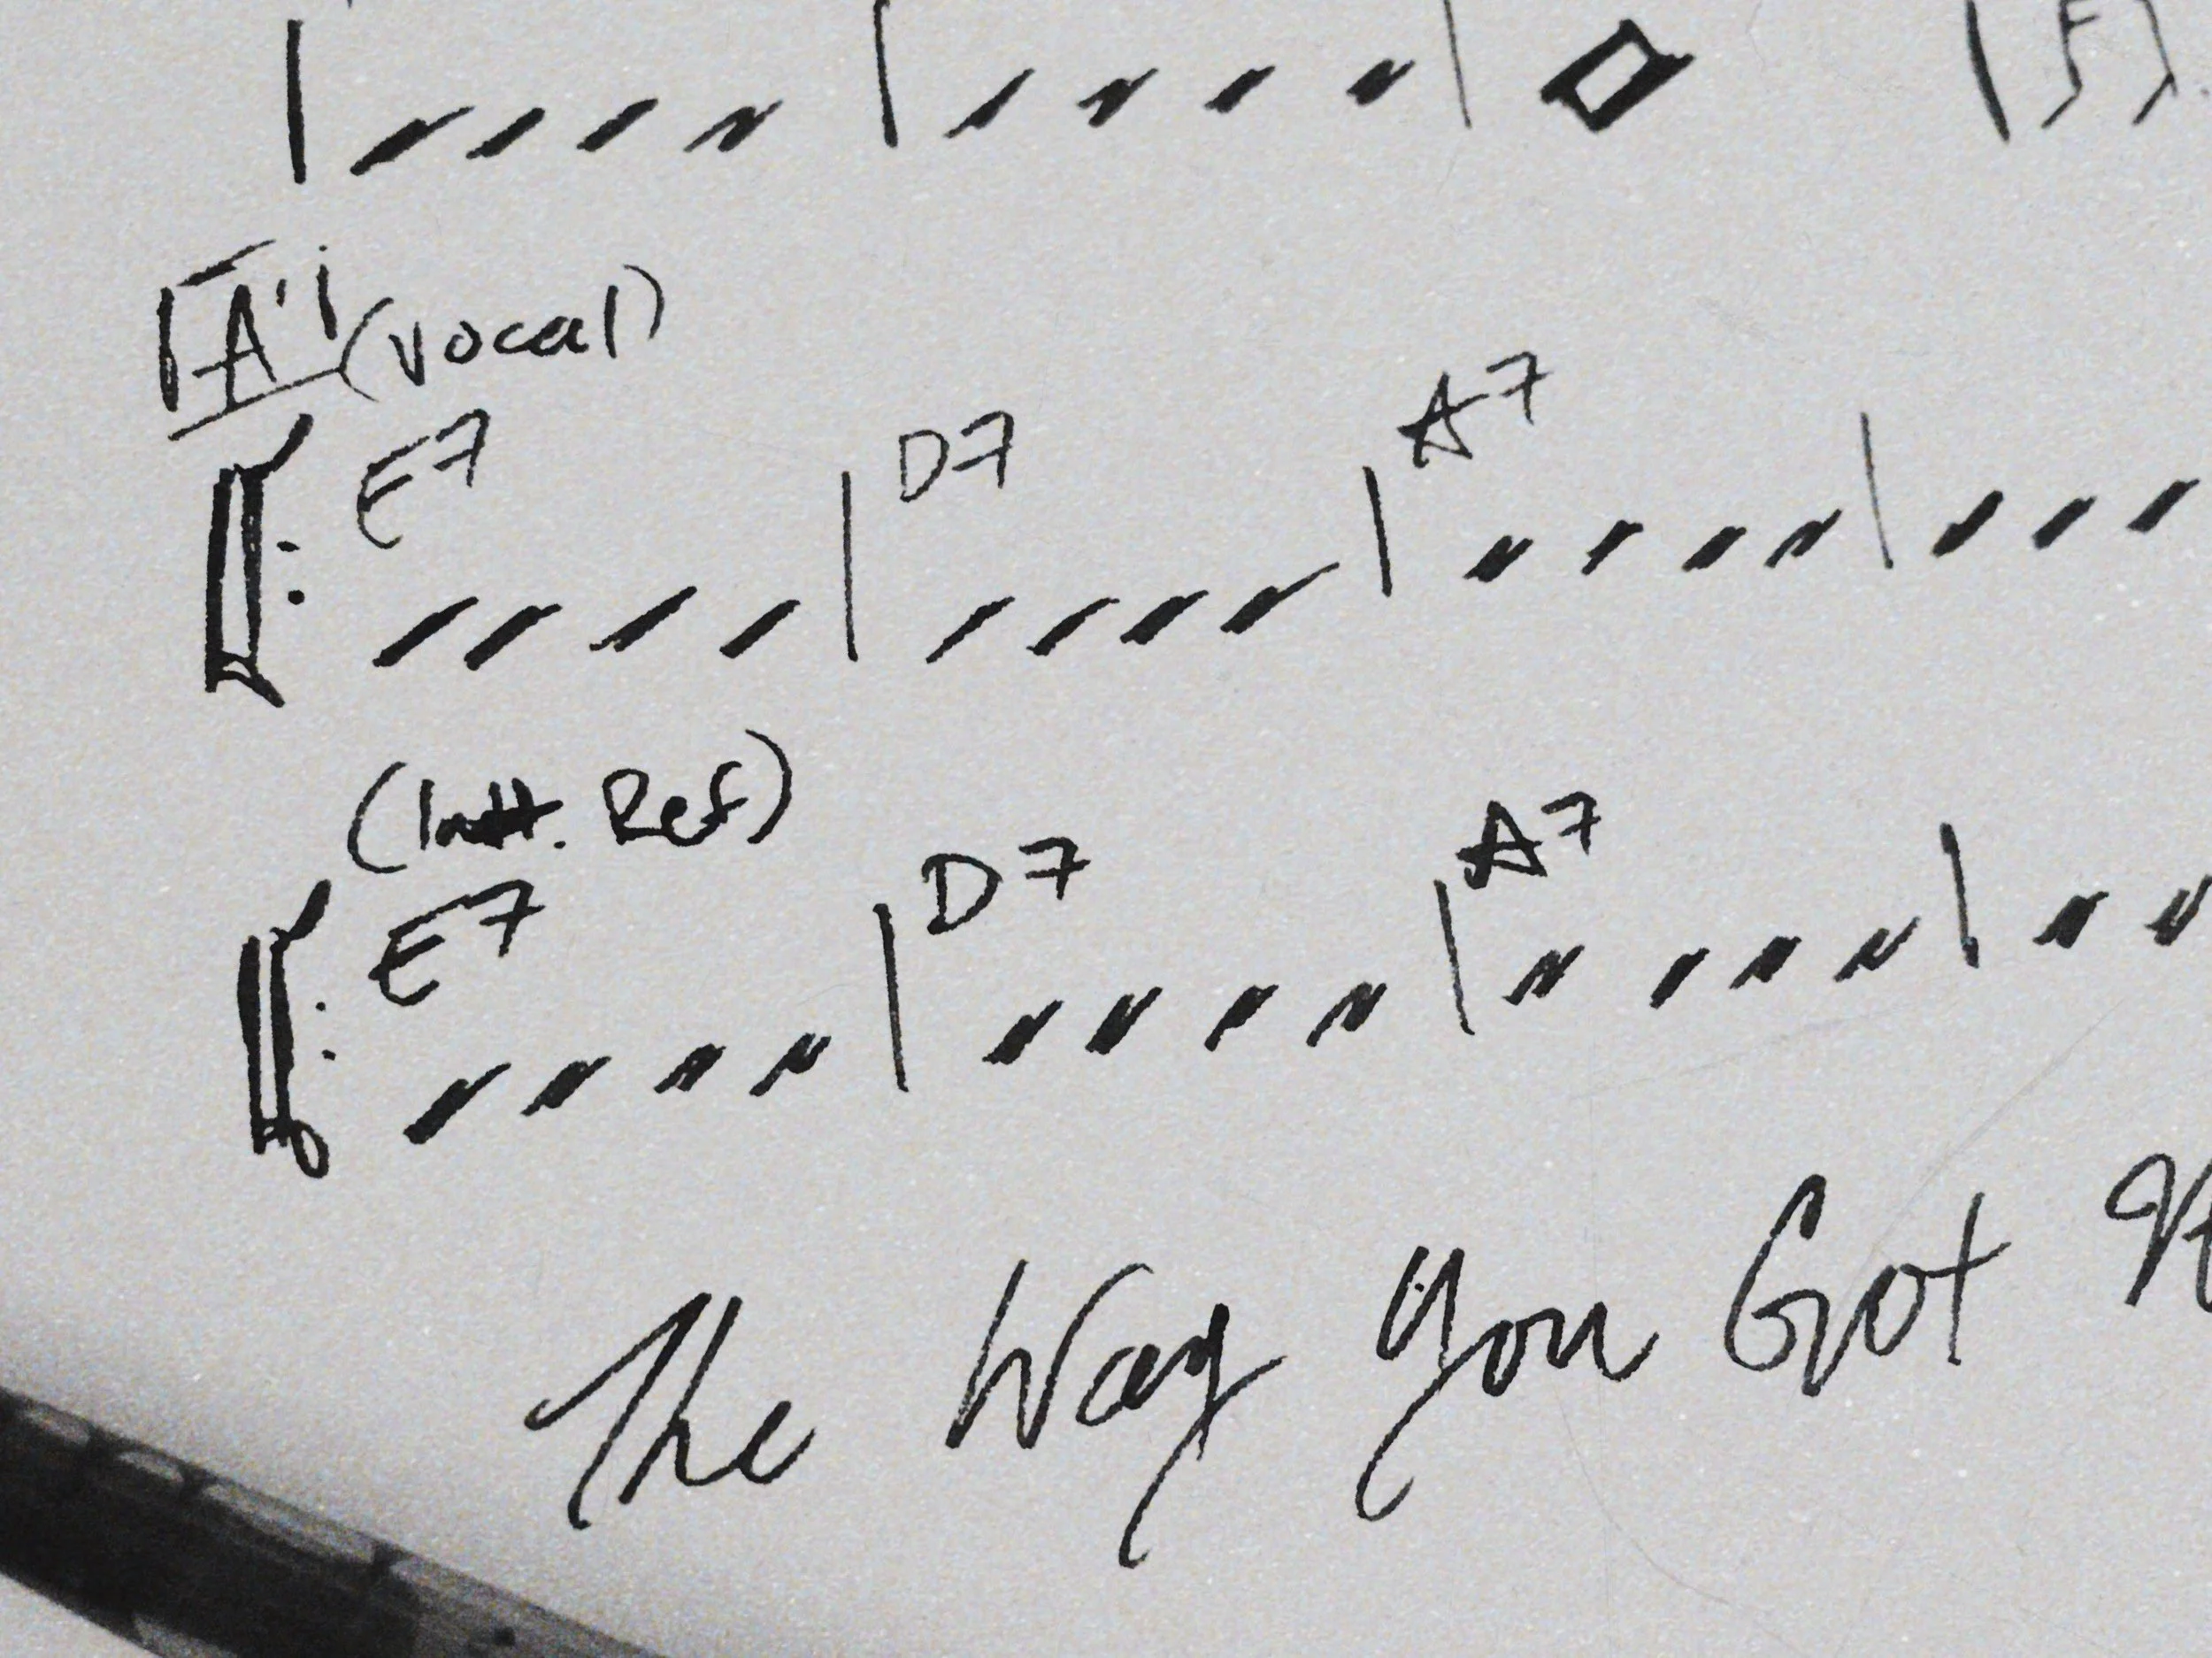 A' (vocal)
E7 D7 A7
(Ref)
E7 D7 A7
The Way You Got